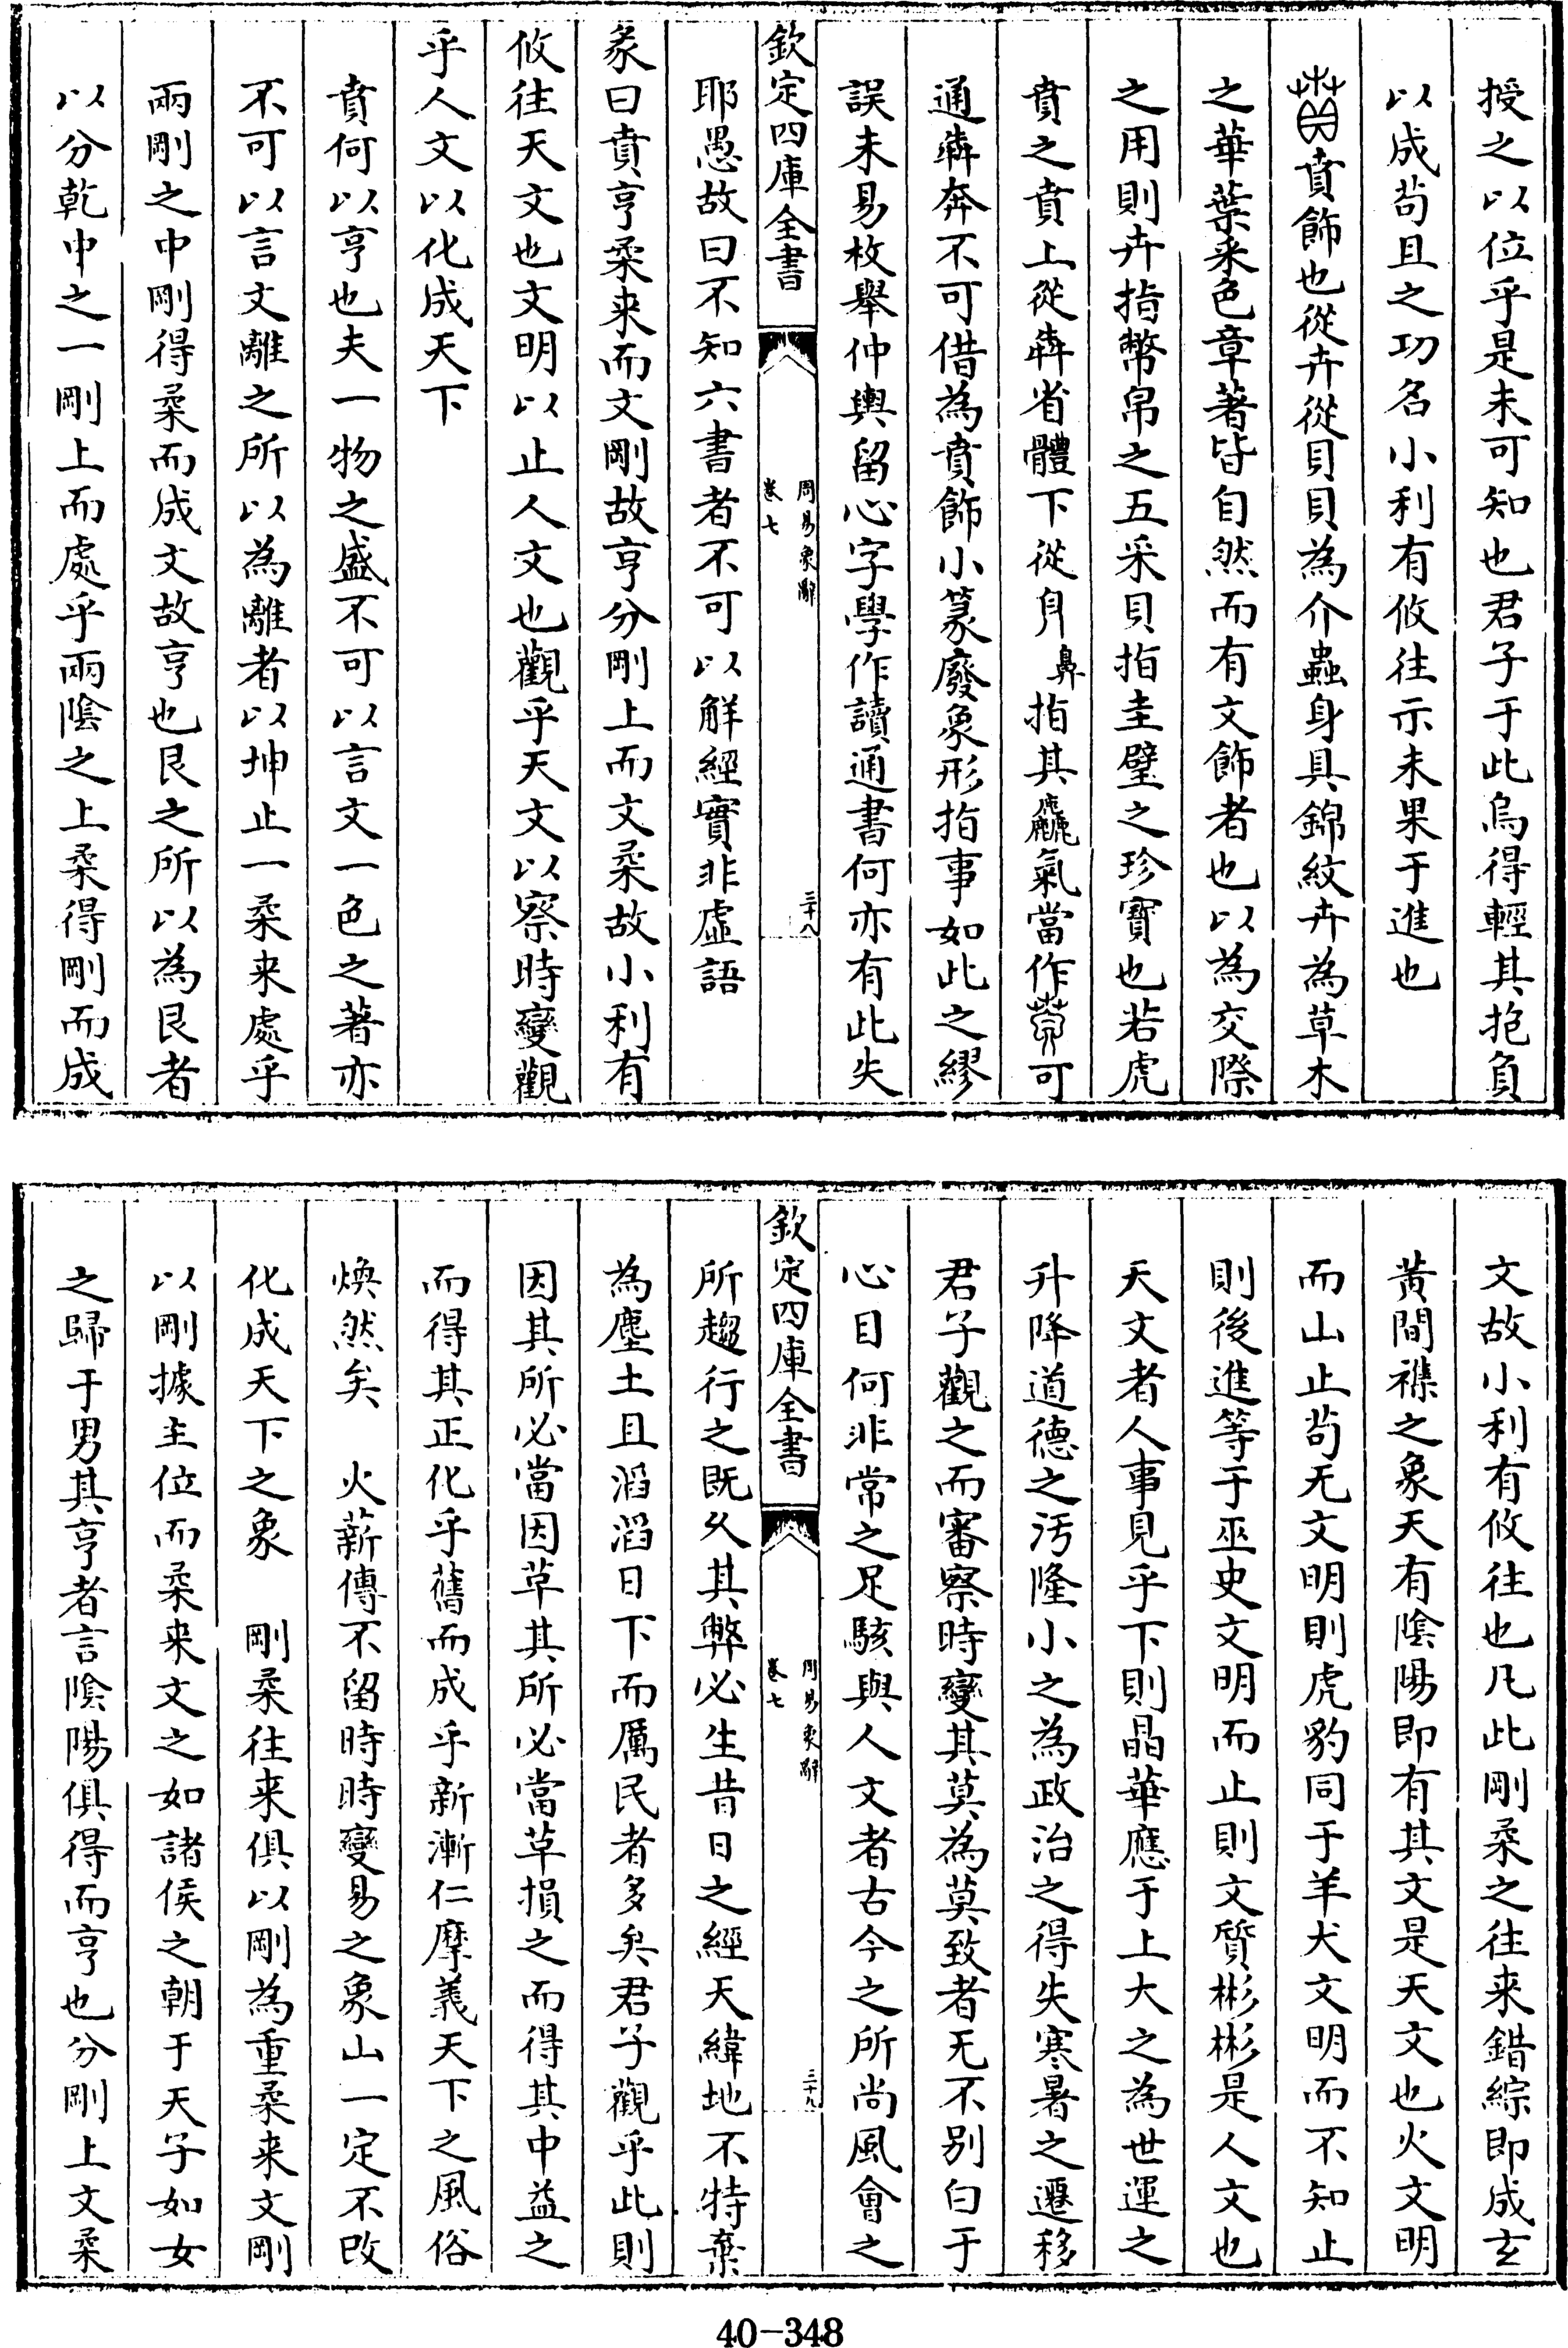 授之以位乎是未可知也君子于此烏得輕其抱負
以成苟且之功名小利有攸往示未果于進也
賁飾也從卉從貝貝為介蟲身具錦紋卉為草木
之華葉采色章著皆自然而有文飾者也以為交際
之用則卉指幣帛之五采貝指圭璧之珍寶也若虎
賁之賁上從犇省體下從自鼻指其麤氣當作可
通犇奔不可借為賁飾小篆廢象形指事如此之繆
誤未易枚舉仲輿留心字學作讀通書何亦有此失
欽定四庫全書
周易象辭
卷七
三十八
耶愚故曰不知六書者不可以解經實非虛語
彖曰賁亨柔来而文剛故亨分剛上而文柔故小利有
攸往天文也文明以止人文也觀乎天文以察時變觀
乎人文以化成天下
賁何以亨也夫一物之盛不可以言文一色之著亦
不可以言文離之所以為離者以坤止一柔来處乎
兩剛之中剛得柔而成文故亨也艮之所以為艮者
以分乾中之一剛上而處乎兩陰之上柔得剛而成
文故小利有攸往也凡此剛柔之往来錯綜即成玄
黃間襍之象天有陰陽即有其文是天文也火文明
而山止苟无文明則虎豹同于羊犬文明而不知止
則後進等于巫史文明而止則文質彬彬是人文也
天文者人事見乎下則晶華應于上大之為世運之
升降道德之汚隆小之為政治之得失寒暑之遷移
君子觀之而審察時變其莫為莫致者无不別白于
心目何非常之足駭與人文者古今之所尚風會之
欽定四庫全書
周易象辭
卷七
三十九
所趨行之既久其弊必生昔日之經天緯地不特棄
為塵土且滔滔日下而厲民者多矣君子觀乎此則
因其所必當因革其所必當革損之而得其中益之
而得其正化乎舊而成乎新漸仁摩義天下之風俗
煥然矣　火薪傳不留時時變易之象山一定不改
化成天下之象　剛柔往来俱以剛為重柔来文剛
以剛據主位而柔来文之如諸侯之朝于天子如女
之歸于男其亨者言陰陽俱得而亨也分剛上文柔
40-348